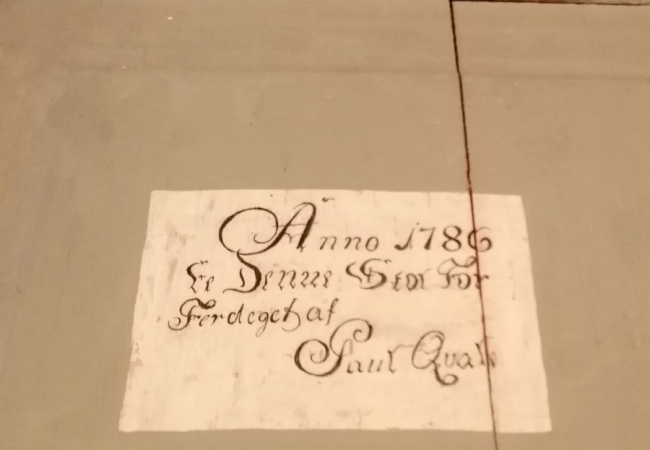 Anno 1786
Er Denne Stol For
Ferdeget af
Paul Qvale